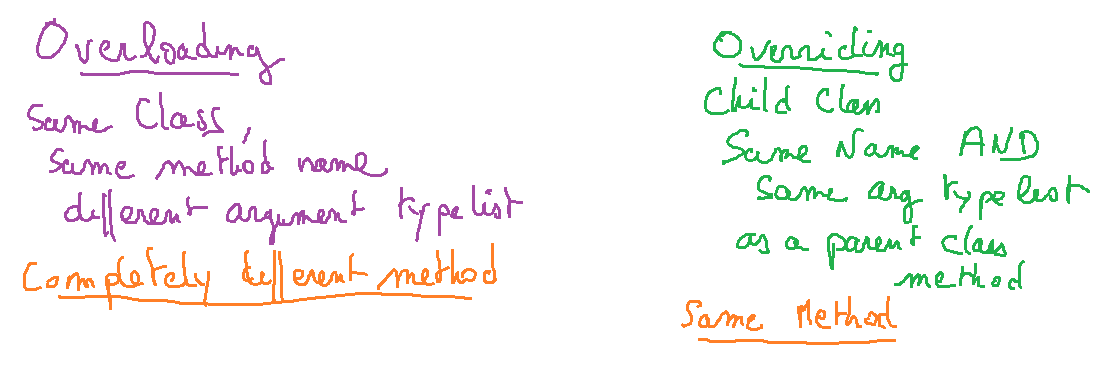 Overloading
Same Class,
Same method name
different argument typelist
Completely different method
Overriding
Child Class
Same Name AND
Same arg typelist
as a parent class
method
Same Method